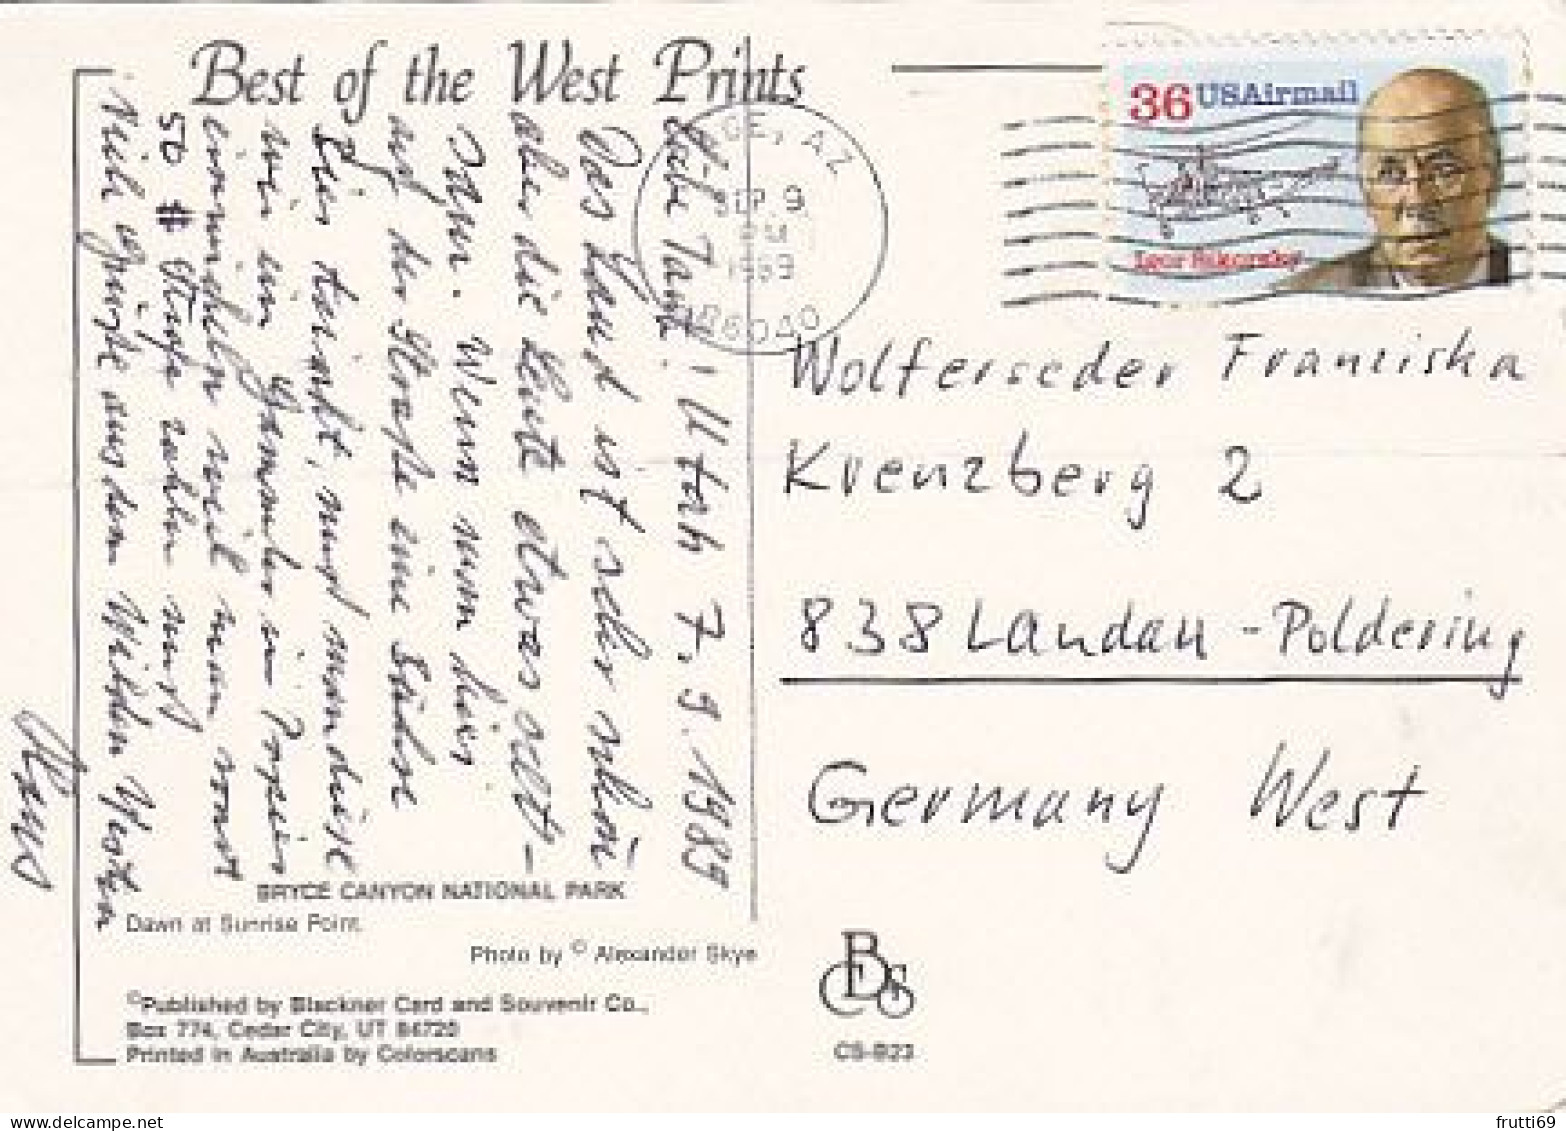 Best of the West Prints
36 USAirmail
Igor Sikorsky
, AZ
SEP 9
PM
1989
86040
Liebe Tante! Utah 7.9.1989
Das Land ist sehr schön
aber die Leute etwas selt-
sam. Wenn man hier
auf der Straße eine Büchse
Bier trinkt, muß man diese
wie ein in Papier
einwickeln weil man sonst
50 # Strafe zahlen muß
Viele Grüße aus dem Wilden Westen
Hans
Wolferseder Franziska
Kreuzberg 2
838 Landau - Poldering
Germany West
BRYCE CANYON NATIONAL PARK
Dawn at Sunrise Point.
Photo by © Alexander Skye
©Published by Blackner Card and Souvenir Co.,
Box 774, Cedar City, UT 84720
Printed in Australia by Colorscans
BCCS
CS-B23
frutti69